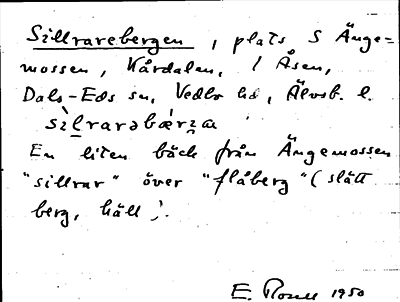 Sillrarebergen, plats S Änge=
mossen, Kårdalen, l Åsen,
Dals-Eds sn, Vedbo hd, Älvsb. l.
sìl̥rarəbǽrza
En liten bäck från Ängemossen
"sillrar" över "flåberg" (slätt
berg, häll).
E. 1950